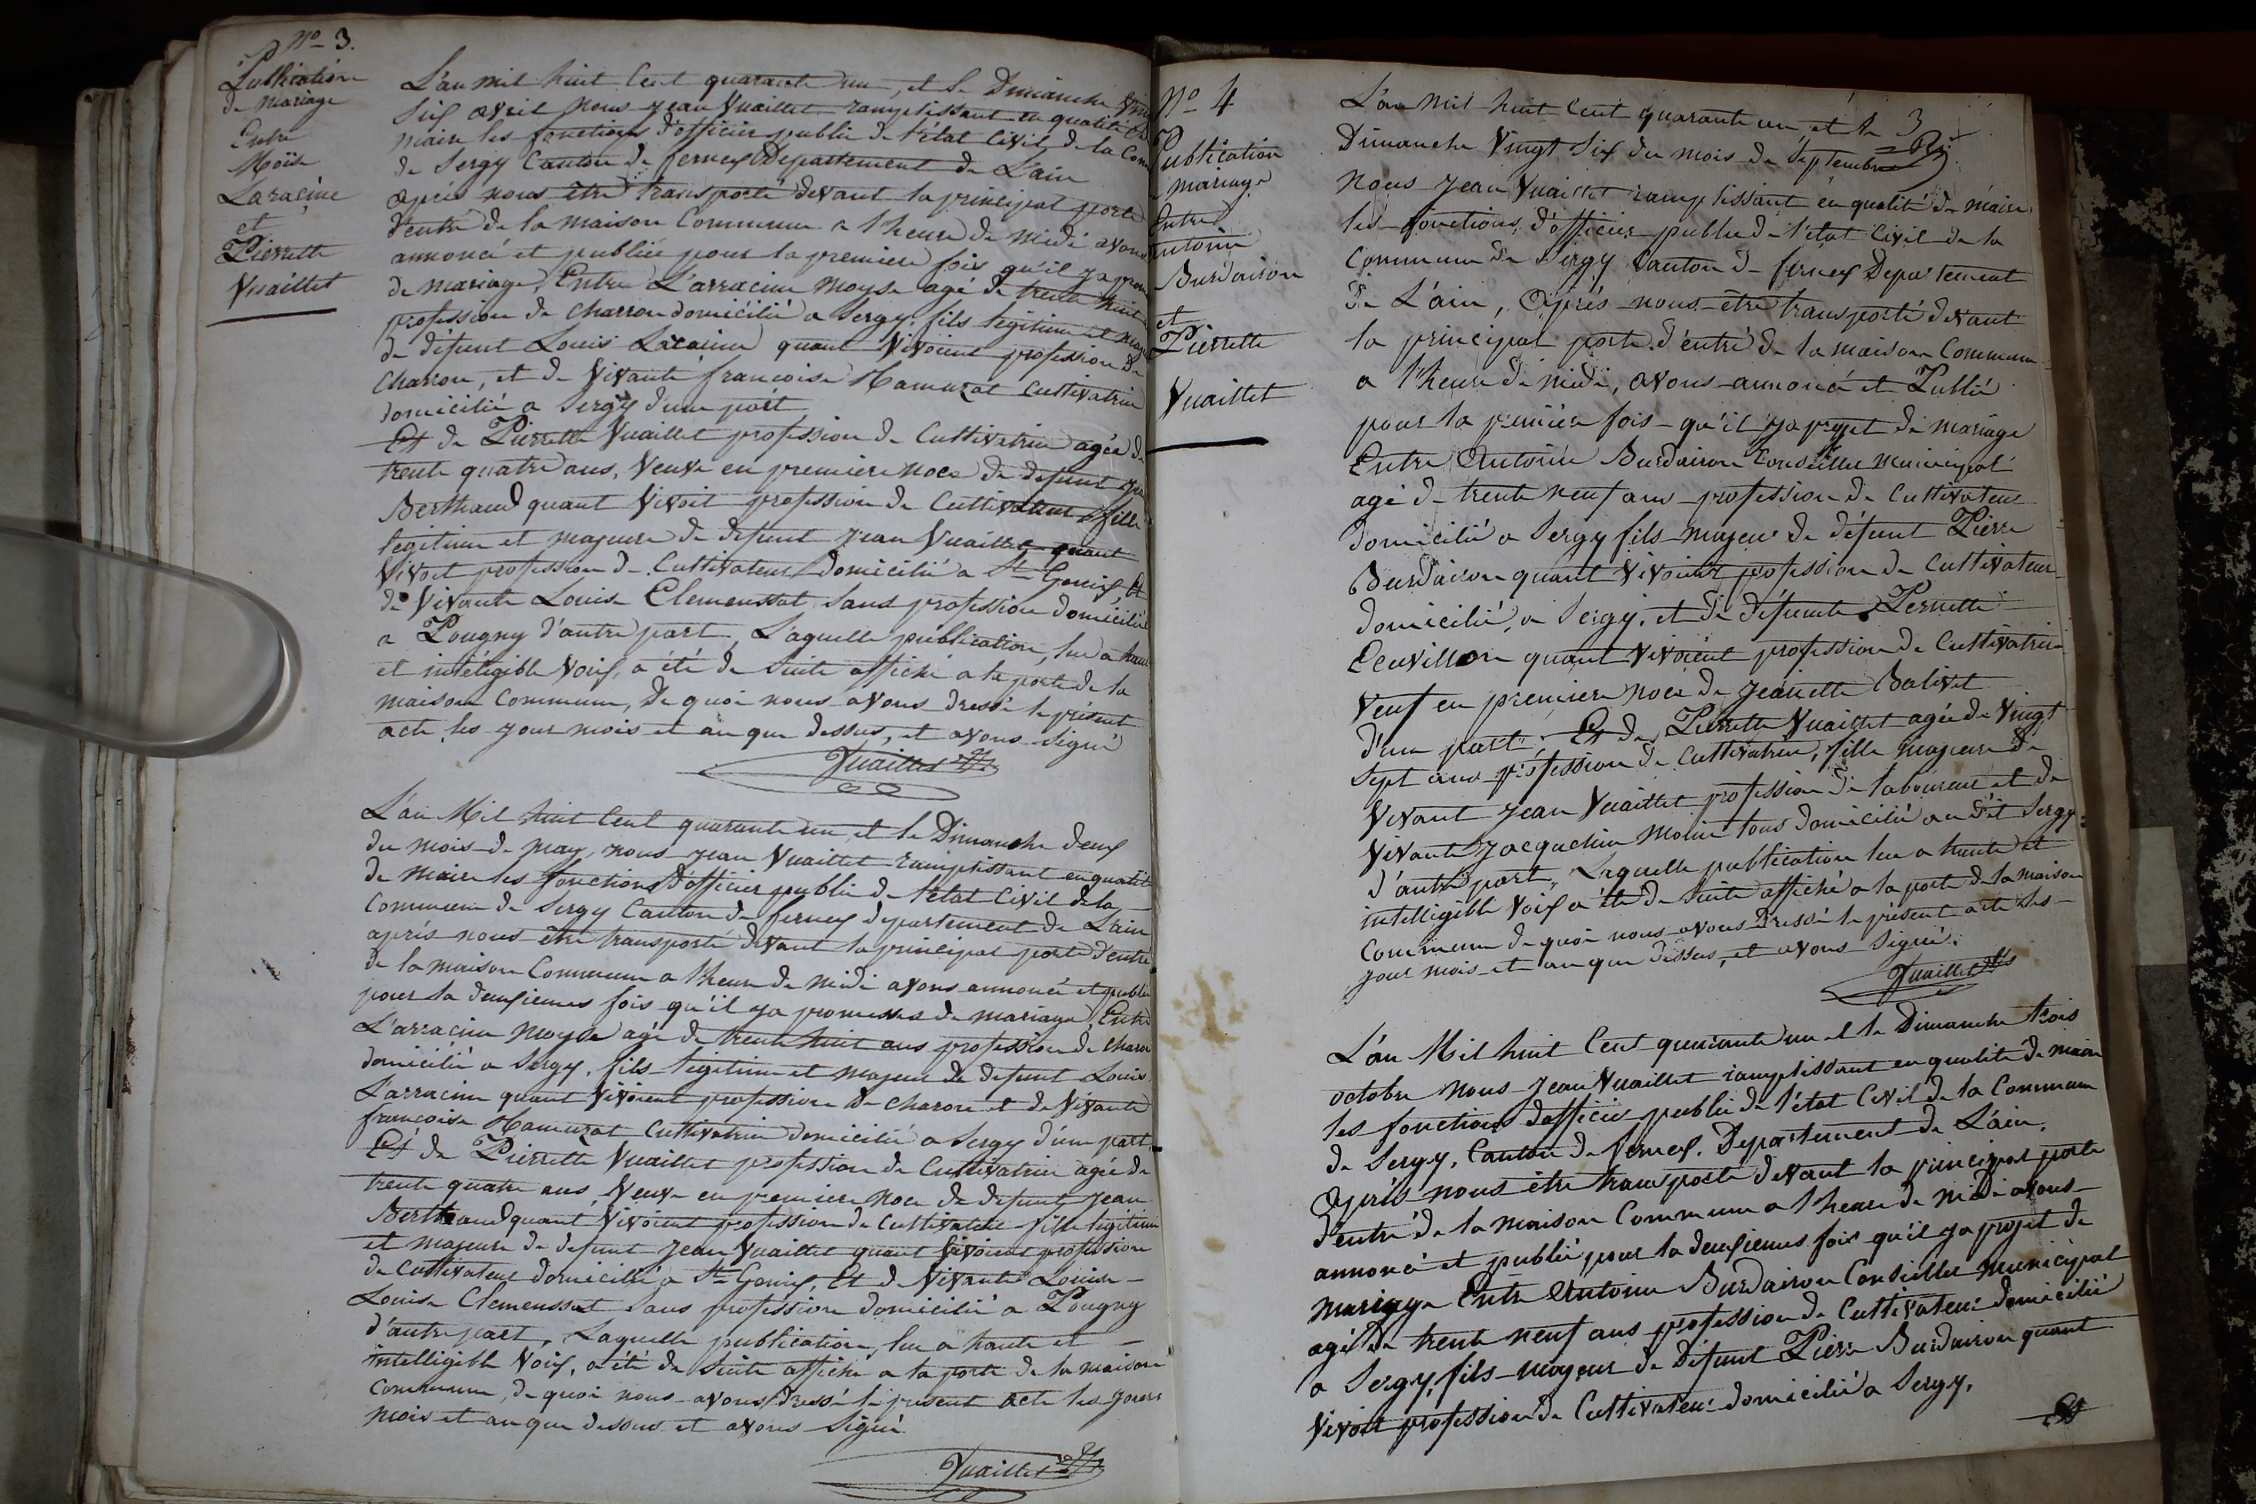 N° 3.
Publication
de mariage
Entre
Moïse
Laracine
et
Pierrette
Vuaillet
L'an mil huit Cent quarante un, et le Dimanche
six avril nous Jean Vuaillet ramplissant en qualité de
maire les fonctions d'officier public de l'état Civil de la
de Sergy Canton de ferney Département de L'ain
après nous être transporté devant la principal porte
d'entré de la maison Commune a l'heure de midi avons
annoncé et publiée pour la premiere fois qu'il ya
de mariage, Entre L'arracine moyse agé de trente huit
profession de charron domicilié a Sergy, fils legitime et
de défunt Louis Laracine quant Vivoient profession de
Charron, et de Vivante françoise Hamuzat Cultivatrice
domicilié a Sergy d'une part
Et de Pierrette Vuaillet profession de Cultivatrice agée de
trente quatre ans, Veuve en premiere noce de defunt
Berthaud quant Vivoit profession de Cultivateur, fille
legitime et majeure de defunt Jean Vuaillet, quant
Vivoit profession de Cultivateur domicilié a St Genix, Et
de Vivante Louise Clemenssat, Sans profession domicilié
a Pougny d'autre part, L'aquelle publication, lue a haute
et intéligible Voix, a été de suite affiché a la porte de la
maison Commune, De quoi nous avons dressé le présent
acte les jour mois et an que dessus, et avons Signé
Vuaillet
L'an Mil huit Cent quarante un, et le Dimanche deux
du mois de may, nous Jean Vuaillet ramplissant en qualité
de maire les fonctions d'officier public de l'état Civil de la
Commune de Sergy Canton de ferney département de L'ain
après nous être transporté devant la principal porte d'entré
de la maison Commune a l'heure de midi avons annoncé et publié
pour la deuxiemes fois qu'il ya promesses de mariage Entre
L'arracine moyse agé de trente huit ans profession de charon
domicilié a Sergy, fils legitime et majeur de defunt Louis
L'arracine quant Vivoient profession de charon et de Vivante
françoise Hamuzat Cultivatrice domicilié a Sergy d'une part
Et de Pierrette Vuaillet profession de Cultivatrice agée de
trente quatre ans, Veuve en premiere noce de defunt Jean
Berthaud quant Vivoient profession de Cultivateur fille legitime
et majeure de defunt Jean Vuaillet quant Vivoient profession
de Cultivateur domicilié a St Genix, Et de Vivante Louise
Louise Clemenssat Sans profession domicilié a Pougny
d'autre part, Laquelle publication, lue a haute et
intelligible Voix, a été de suite affiché a la porte de la maison
Commune, de quoi nous avons dressé le present acte les jours
mois et an que dessus et avons Signé
Vuaillet
N° 4
Publication
mariage
Entre
Antoine
Burdairon
et
Pierrette
Vuaillet
3
L'an mil huit Cent quarante un et le
Dimanche Vingt Six du mois de Septembre
nous Jean Vuaillet ramplissant en qualité de maire
les fonctions d'officier public de l'état Civil de la
Commune de Sergy Canton de ferney Departement
de L'ain, Après nous être transporté devant
la principal porte d'entré de la maison Commune
a l'heure de midi, avons annoncé et Publié
pour la premiere fois qu'il ya projet de mariage
Entre Antoine Burdairon Conseiller municipal
agé de trente neuf ans profession de Cultivateur
domicilié a Sergy fils majeur de défunt Pierre
Burdairon quant Vivoient profession de Cultivateur
domicilié a Sergy, et de défunte Pernette
Ecuvillon quant Vivoient profession de Cultivatrice
Veuf en premiere noce de Jeanette Balivet
d'une part. Et de Pierrette Vuaillet agée de Vingt
Sept ans profession de Cultivatrice, fille majeure de
Vivant Jean Vuaillet profession de laboureur et de
Vivante Jacqueline Moine tous domicilié au dit Sergy
d'autre part, Laquelle publication lue a haute et
intelligible Voix a été de suite affiché a la porte de la maison
Commune de quoi nous avons dressé le présent acte les
jour mois et an que dessus, et avons Signé.
Vuaillet
L'an Mil huit Cent quarante un et le Dimanche trois
octobre nous Jean Vuaillet ramplissant en qualité de maire
les fonctions d'officier public de l'état Civil de la Commune
de Sergy, Canton de ferney, Departement de L'ain,
Après nous être transporté devant la principal porte
d'entré de la maison Commune a l'heure de midi avons
annoncé et publié pour la deuxiemes fois qu'il ya projet de
mariage Entre Antoine Burdairon Conseiller municipal
agé de trente neuf ans profession de Cultivateur domicilié
a Sergy, fils majeur de défunt Pierre Burdairon quant
Vivoit profession de Cultivateur domicilié a Sergy,
Et